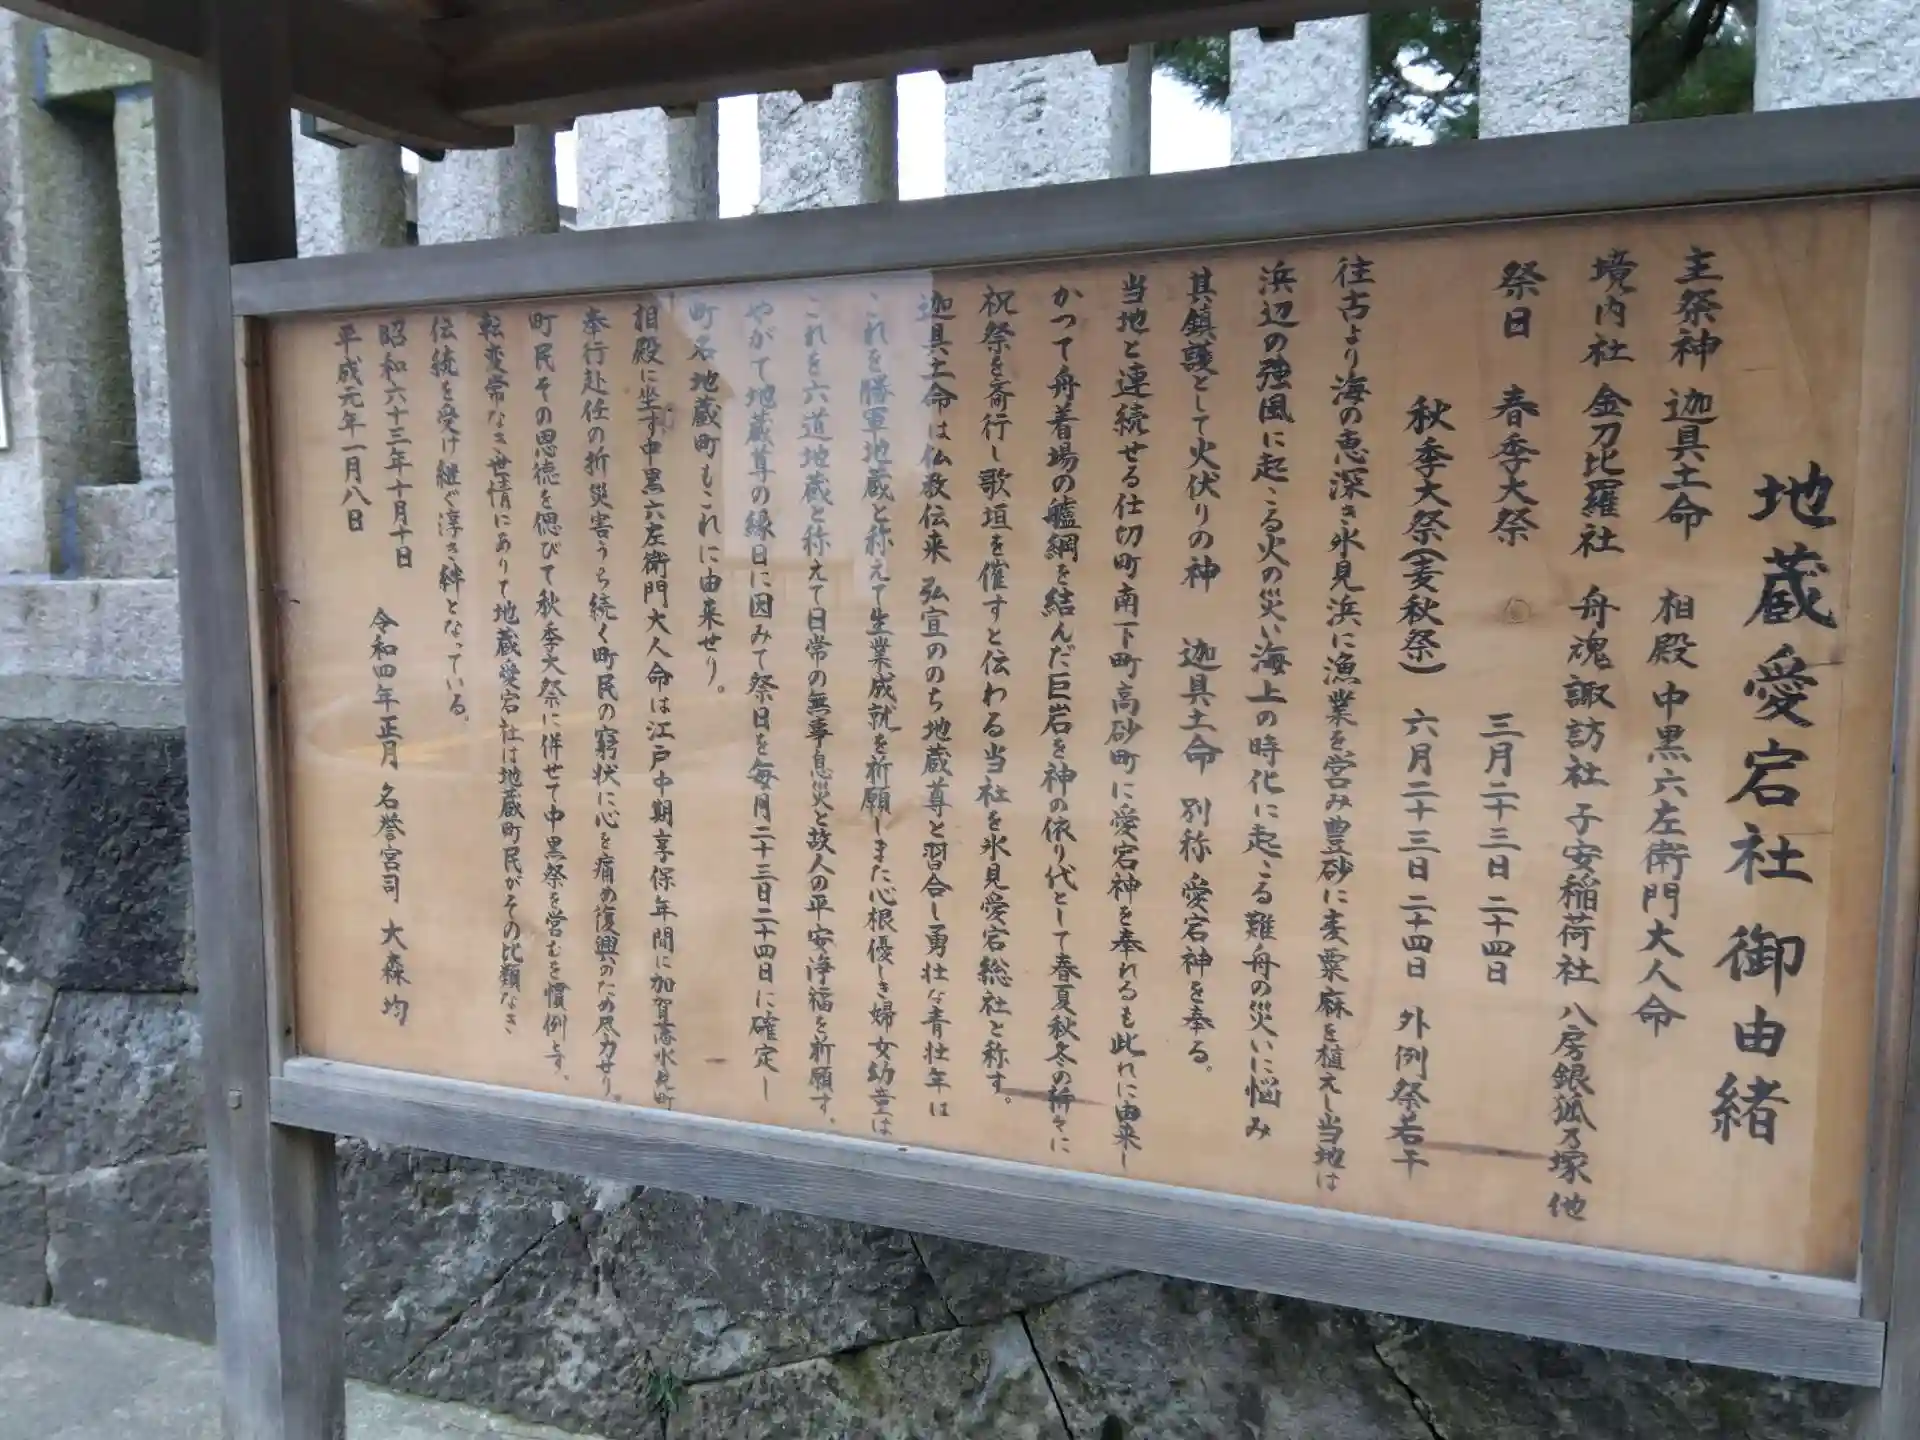 地蔵愛宕社 御由緒
主祭神 迦具土命 相殿 中黒六左衛門大人命
境内社 金刀比羅社 舟魂 諏訪社 子安稲荷社 八房銀狐乃塚 他
祭日 春季大祭 三月二十三日 二十四日
秋季大祭(麦秋祭) 六月二十三日 二十四日 外例祭若干
往古より海の恵深き氷見浜に漁業を営み豊砂に麦粟麻を植えし当地は
浜辺の強風に起こる火の災い海上の時化に起こる難舟の災いに悩み
其鎮護として火伏りの神 迦具土命 別称 愛宕神を奉る。
当地と連続せる仕切町南下町高砂町に愛宕神を奉れるも此れに由来し
かつて舟着場の艫綱を結んだ巨岩を神の依り代として春夏秋冬の折々に
祝祭を斎行し歌垣を催すと伝わる当社を氷見愛宕総社と称す。
迦具土命は仏教伝来 弘宣ののち地蔵尊と習合し勇壮な青壮年は
これを勝軍地蔵と称えて生業成就を祈願しまた心根優しき婦女幼童は
これを六道地蔵と称えて日常の無事息災と故人の平安浄福を祈願す。
やがて地蔵尊の縁日に因みて祭日を毎月二十三日二十四日に確定し
町名地蔵町もこれに由来せり。
相殿に坐す中黒六左衛門大人命は江戸中期享保年間に加賀藩氷見町
奉行赴任の折災害うち続く町民の窮状に心を痛め復興のため尽力せり。
町民その恩徳を偲びて秋季大祭に併せて中黒祭を営むを慣例とす。
転変常なき世情にありて地蔵愛宕社は地蔵町民がその比類なき
伝統を受け継ぐ淳き絆となっている。
昭和六十三年十月十日
平成元年一月八日
令和四年正月 名誉宮司 大森均